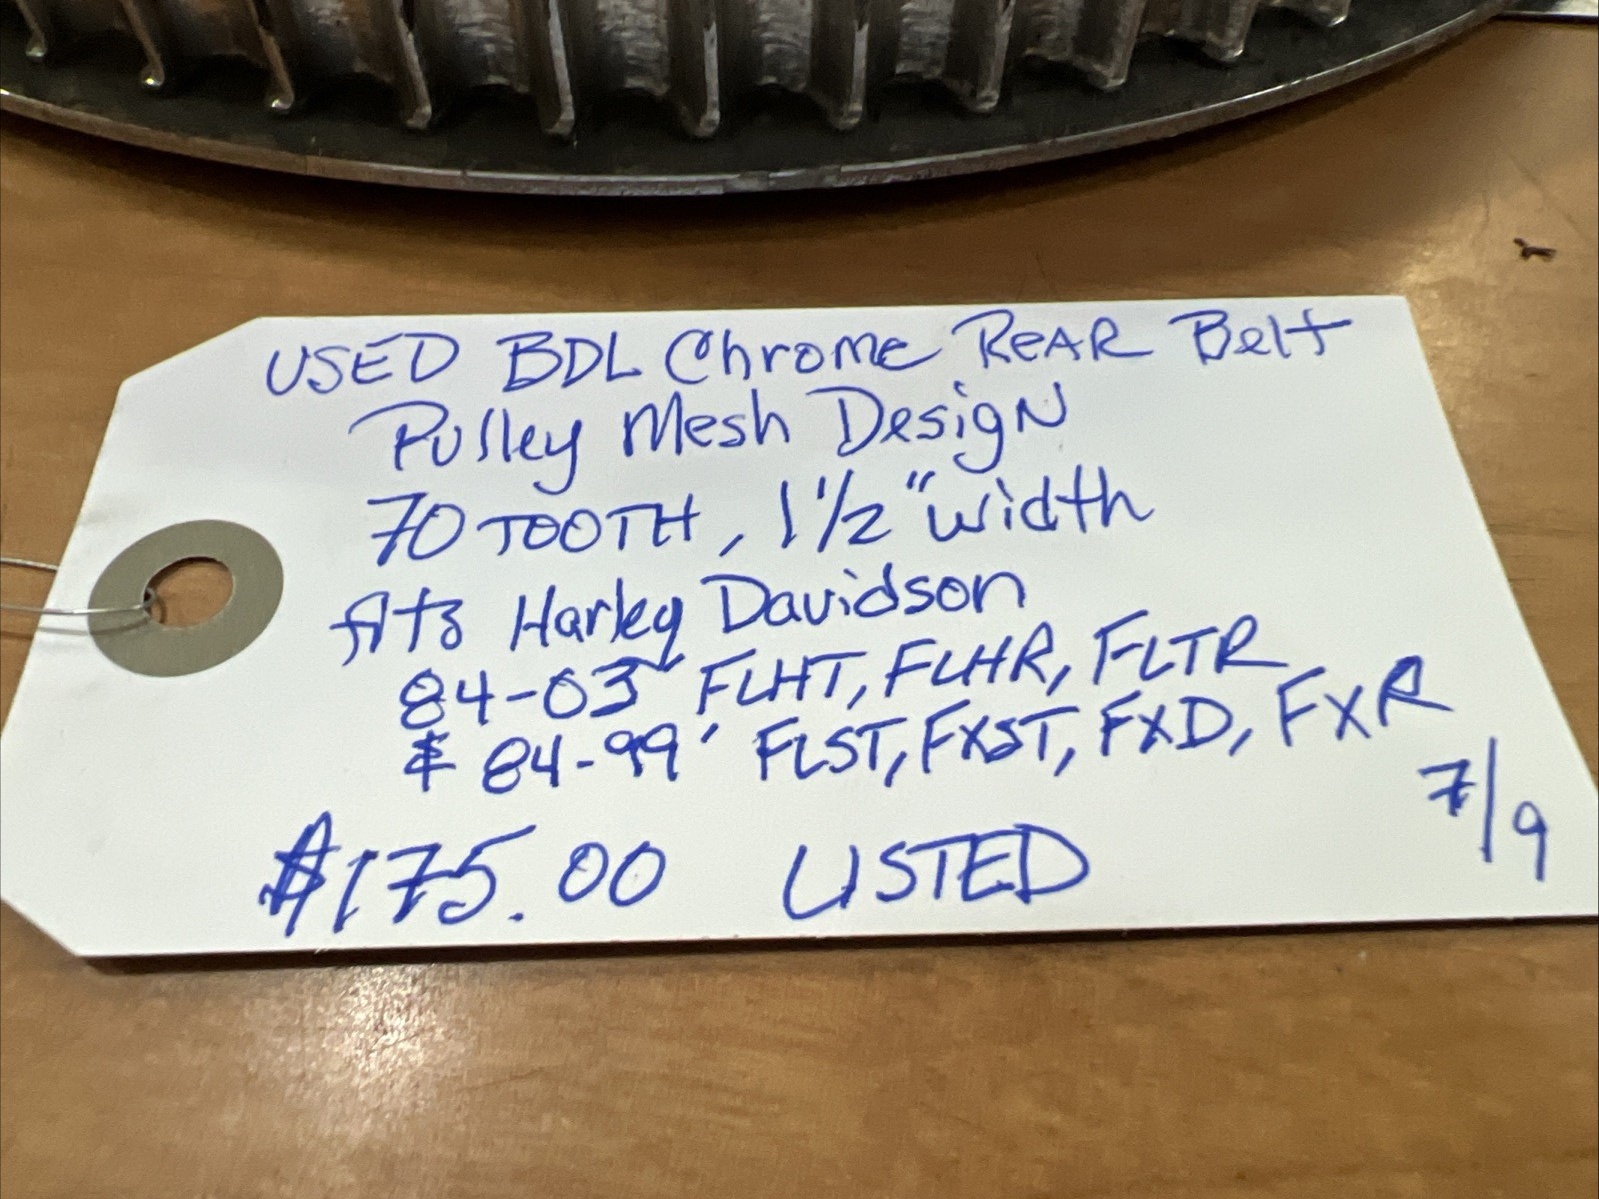 USED BDL Chrome ReAR Belt
Pulley Mesh Design
70 TOOTH, 1 1/2" width
fits Harley Davidson
84-03' FLHT, FLHR, FLTR
& 84-99' FLST, FXST, FXD, FXR
7/9
$175.00 LISTED